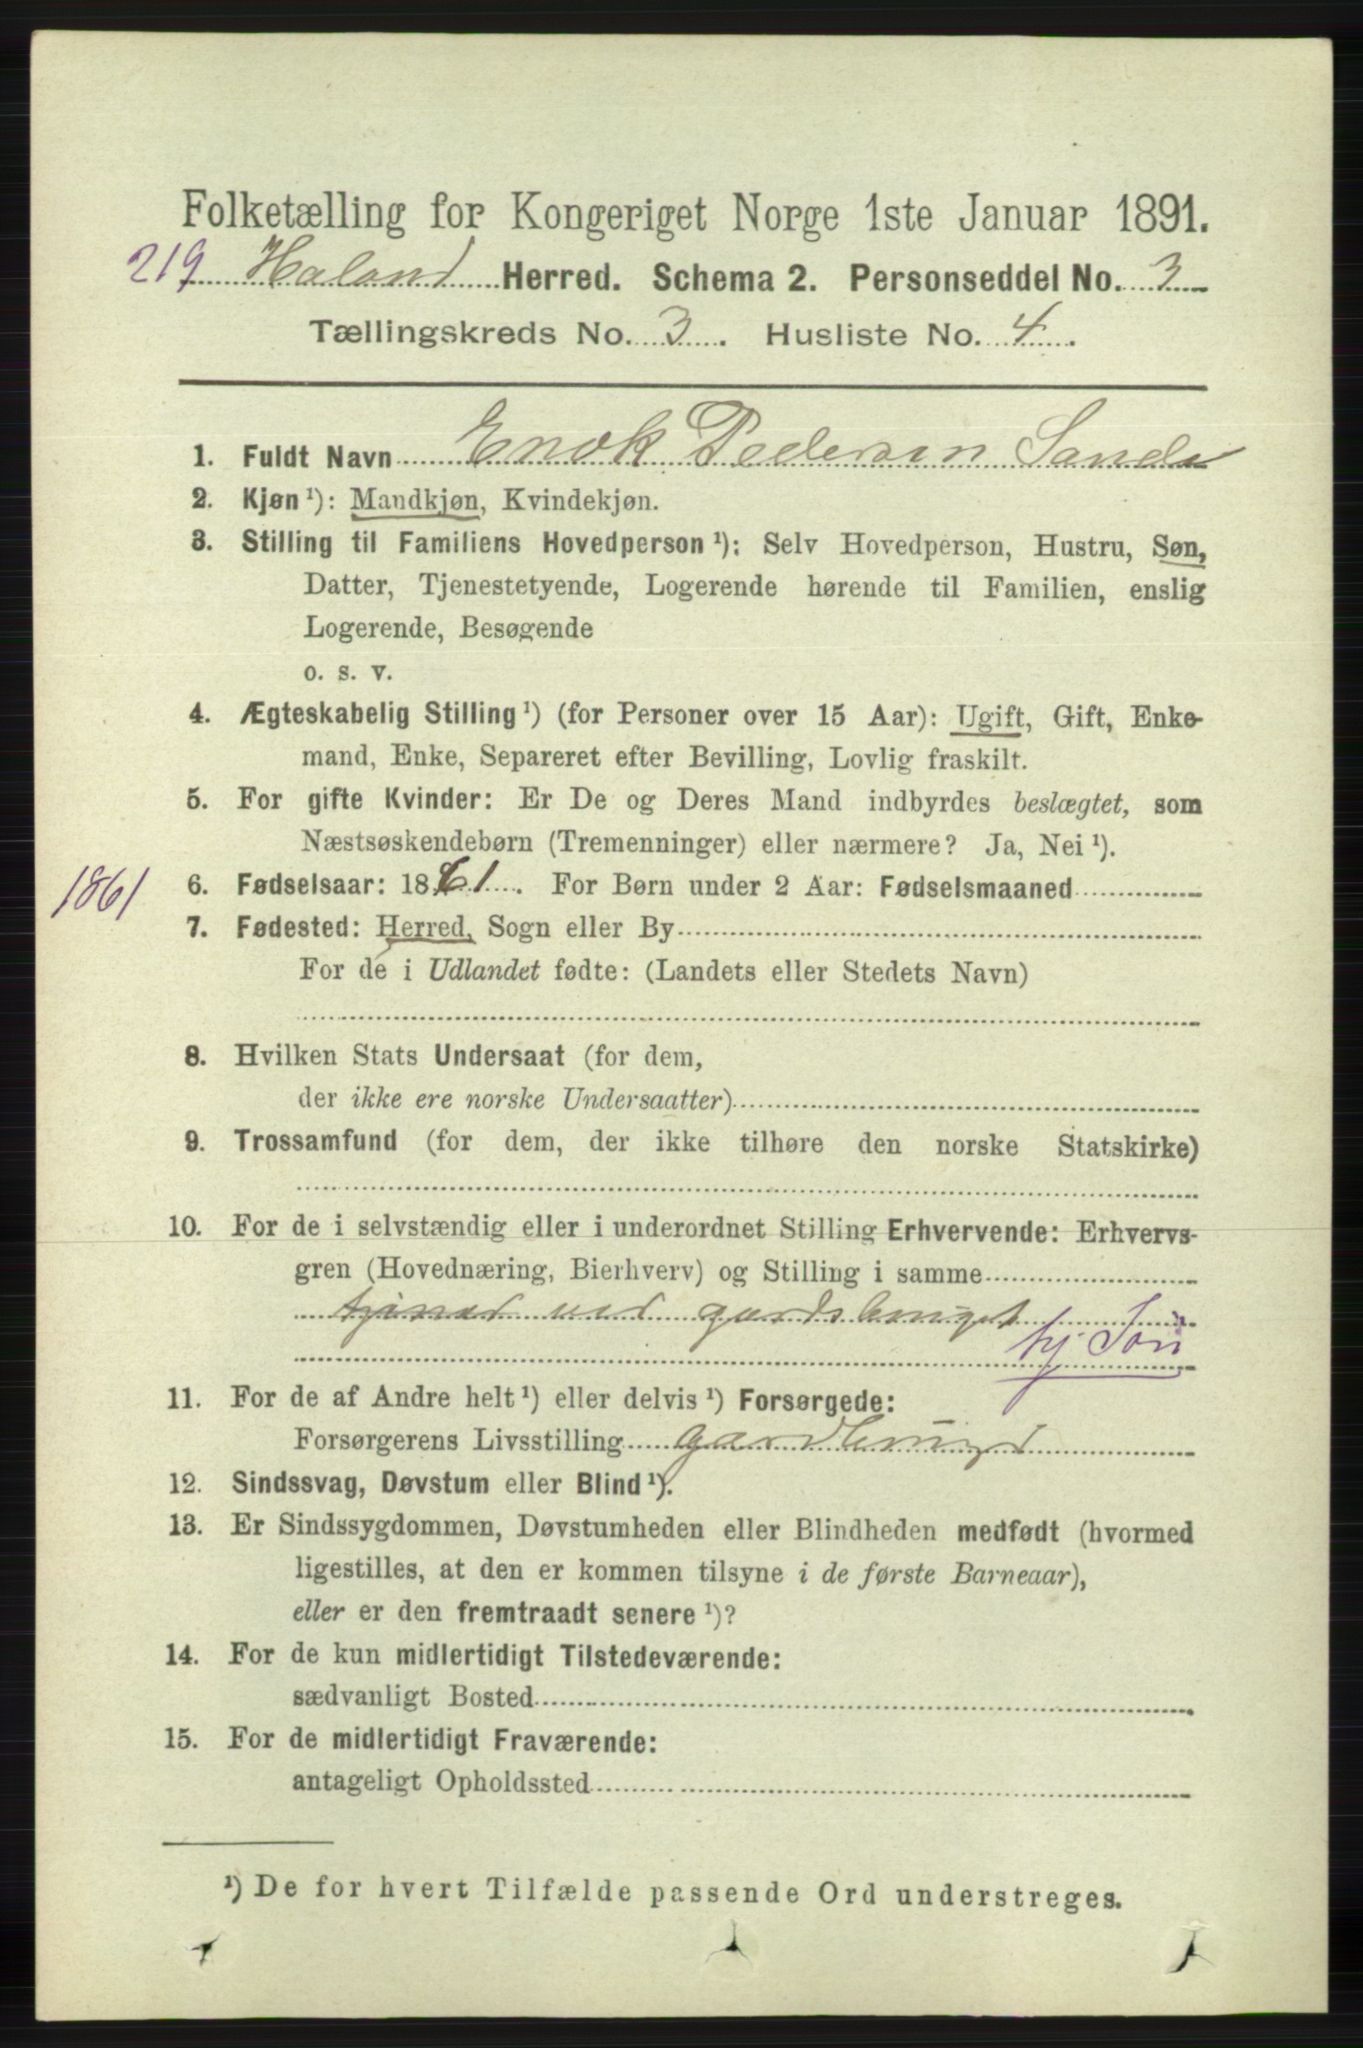 Folketælling for Kongeriget Norge 1ste Januar 1891.
219 Haland Herred. Schema 2. Personseddel No. 3
Tællingskreds No. 3. Husliste No. 4.
1. Fuldt Navn Enok Pedersen Sande
2. Kjøn ¹): Mandkjøn, Kvindekjøn.
3. Stilling til Familiens Hovedperson ¹): Selv Hovedperson, Hustru, Søn,
Datter, Tjenestetyende, Logerende hørende til Familien, enslig
Logerende, Besøgende
o. s. v.
4. Ægteskabelig Stilling ¹) (for Personer over 15 Aar): Ugift, Gift, Enke-
mand, Enke, Separeret efter Bevilling, Lovlig fraskilt.
5. For gifte Kvinder: Er De og Deres Mand indbyrdes beslægtet, som
Næstsøskendebørn (Tremenninger) eller nærmere? Ja, Nei ¹).
1861 6. Fødselsaar: 1861. For Børn under 2 Aar: Fødselsmaaned
7. Fødested: Herred, Sogn eller By
For de i Udlandet fødte: (Landets eller Stedets Navn)
8. Hvilken Stats Undersaat (for dem,
der ikke ere norske Undersaatter)
9. Trossamfund (for dem, der ikke tilhøre den norske Statskirke)
10. For de i selvstændig eller i underordnet Stilling Erhvervende: Erhvervs-
gren (Hovednæring, Bierhverv) og Stilling i samme
ved gardsbruget
tj Søn
11. For de af Andre helt ¹) eller delvis ¹) Forsørgede:
Forsørgerens Livsstilling
12. Sindssvag, Døvstum eller Blind ¹).
13. Er Sindssygdommen, Døvstumheden eller Blindheden medfødt (hvormed
ligestilles, at den er kommen tilsyne i de første Barneaar),
eller er den fremtraadt senere ¹)?
14. For de kun midlertidigt Tilstedeværende:
sædvanligt Bosted
15. For de midlertidigt Fraværende:
antageligt Opholdssted
¹) De for hvert Tilfælde passende Ord understreges.